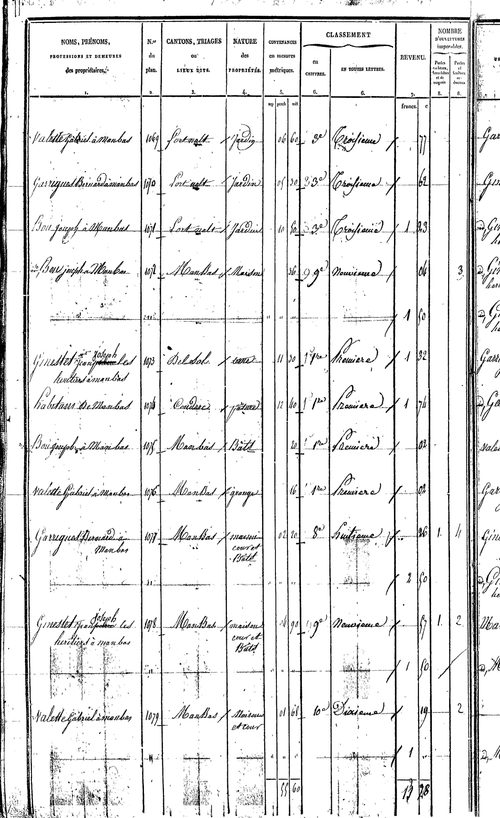 NOMS, PRÉNOMS,
PROFESSIONS ET DEMEURES
des propriétaires.
N.os
du
plan.
CANTONS, TRIAGES
ou
LIEUX DITS.
NATURE
des
PROPRIÉTÉS.
CONTENANCES
en mesures
métriques.
CLASSEMENT
en
chiffres.
EN TOUTES LETTRES.
REVENU.
NOMBRE
D'OUVERTURES
imposables.
1. 2. 3. 4. 5. 6. 6. 7. 8. 8.
francs. c
Valette Gabriel à manbas 1069 Port nalt Jardin 06 60 3e Troisieme 77
Garrigual Bernard à manbas 1070 Port nalt Jardin 05 30 3e Troisieme 62
Bou joseph à Manbas 1071 Port nalt Jardin 10 50 3e Troisieme 1 23
id. Bou joseph à Manbas 1072 ManBas Maison 36 9e Neuvieme 04 3
1 50
Ginestet Joseph les 1073 Del sol terre 11 30 1re Premiere 1 32
heritiers à manbas
habitans De Manbas 1074 Couderc pature 12 60 1re Premiere 1 74
Bou joseph à Manbas 1075 Manbas Bâtt 20 1re Premiere 02
Valette Gabriel à manbas 1076 ManBas grange 16 1re Premiere 02
Garrigual Bernard à 1077 ManBas maison 02 20 8e huitieme 26 1. 4
Manbas cour et
Bâtt
2 50
Ginestet Joseph les 1078 ManBas maison 04 90 9e Neuvieme 57 1. 2
heritiers à manbas cour et
Bâtt
1 50
Valette Gabriel à manbas 1079 ManBas Maison 01 68 10e Dixieme 19 2
et cour
1 "
55 60 13 28